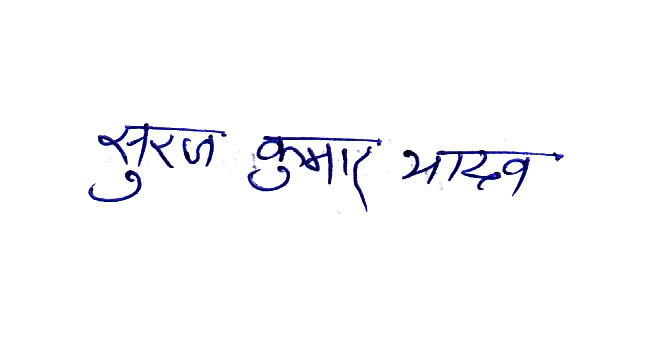 सुरज कुमार यादव